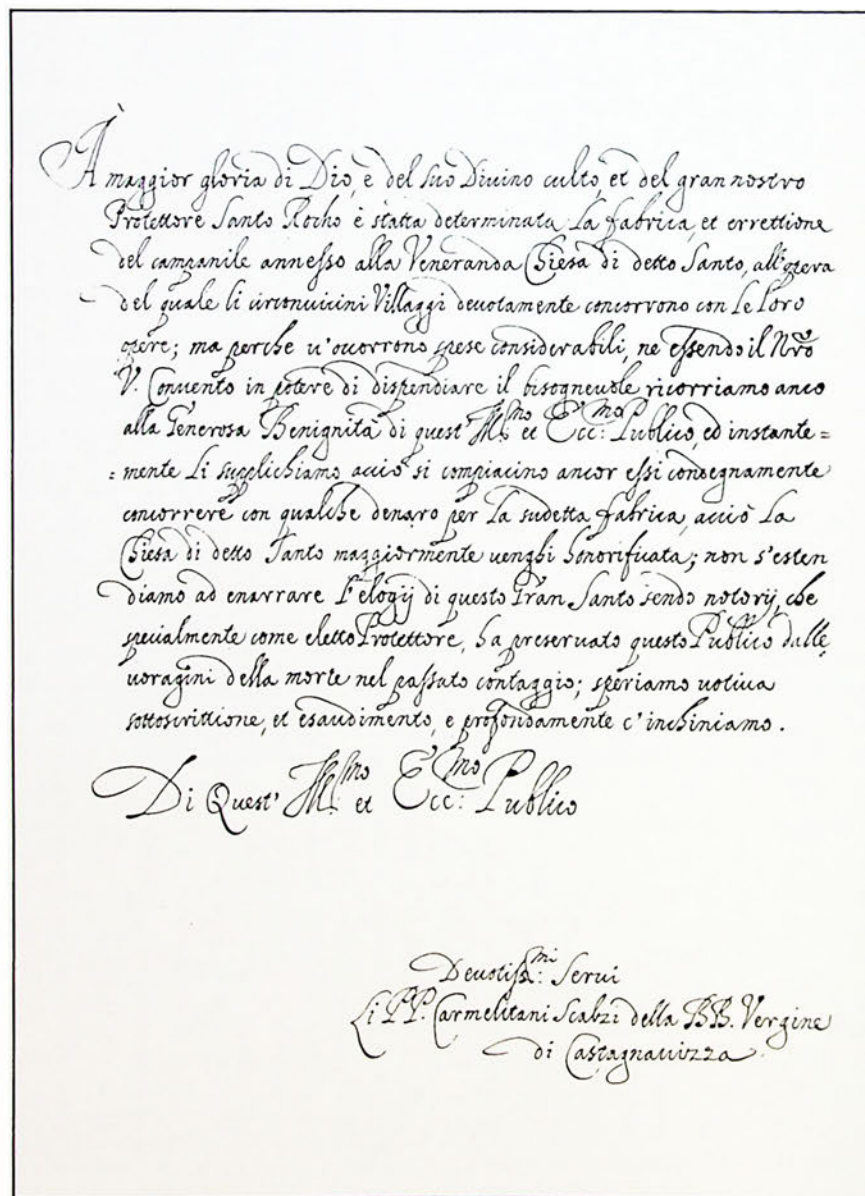 À maggior gloria di Dio, e del suo Divino culto, et del gran nostro
Protettore Santo Rocho è statta determinata la fabrica, et errettione
del campanile annesso alla Veneranda Chiesa di detto Santo, all'opera
del quale li circonvicini Villaggi devotamente concorrono con le loro
opere; ma perche v'occorrono spese considerabili, ne essendo il Nro
V. Convento in potere di dispendiare il bisognevole ricorriamo anco
alla Generosa Benignità di quest' Ill:mo et Ecc:mo Publico, ed instante=
=mente li supplichiamo acciò si compiacino ancor essi condegnamente
concorrere con qualche denaro per la sudetta fabrica, acciò la
Chiesa di detto Santo maggiormente venghi honorificata; non s'esten
diamo ad enarrare l'elogij di questo Gran Santo sendo notorij, che
specialmente come eletto Protettore, ha preservato questo Publico dalle
voragini della morte nel passato contaggio; speriamo votiva
sottoscrittione, et esaudimento, e profondamente c'inchiniamo.
Di Quest' Ill:mo et Ecc:mo Publico
Devotiss:mi Servi
Li PP. Carmelitani Scalzi della BB. Vergine
di Castagnavizza